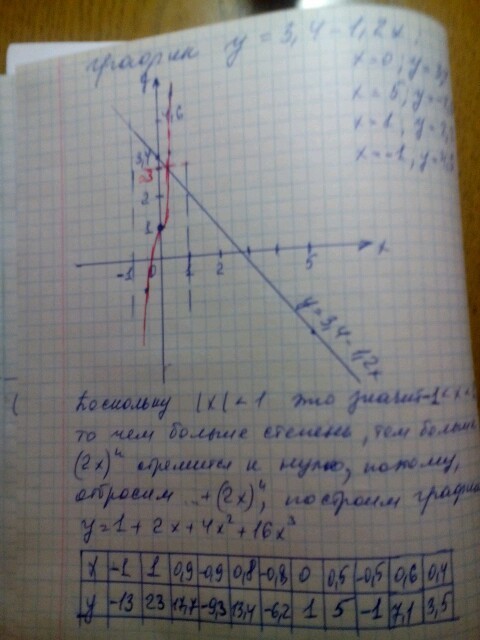 график y = 3,4 - 1,2x
x=0; y=3,4
x=5; y=-
x=1; y=2,
x=-1, y=4,
y
4,6
3,4
3
2
1
-1 0 1 2 5 x
y=3,4-1,2x
Поскольку |x|<1 это значит -1<x<
то чем больше степень, тем больше
(2x)ⁿ стремится к нулю, поэтому,
отбросим ..+(2x)ⁿ, построим график
y=1+2x+4x²+16x³
x -1 1 0,9 -0,9 0,8 -0,8 0 0,5 -0,5 0,6 0,4
y -13 23 17,7 -9,3 13,4 -6,2 1 5 -1 7,1 3,5